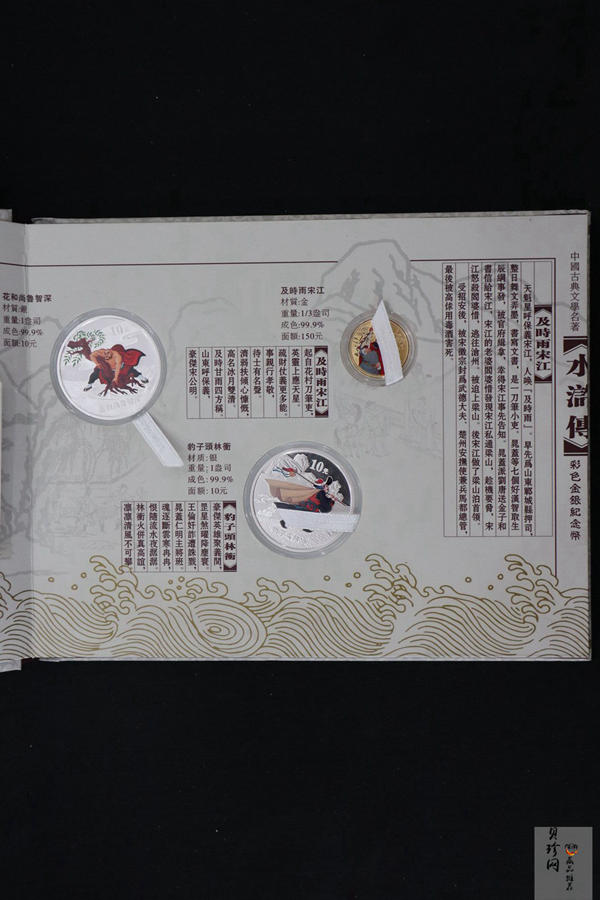 中國古典文學名著
《水滸傳》
彩色金銀紀念幣
【及時雨宋江】
天魁星呼保義宋江，人喚「及時雨」。早先爲山東鄆城縣押司，
整日舞文弄墨，書寫文書，是一刀筆小吏。晁蓋等七個好漢智取生
辰綱事發，被官府緝拿，幸得宋江事先告知。晁蓋派劉唐送金子和
書信給宋江，宋江的老婆閻婆惜發現宋江私通梁山，趁機要脅，宋
江怒殺閻婆惜，逃往滄州，被迫上梁山。後宋江做了梁山泊首領。
受招安後，被宋徽宗封爲武德大夫、楚州安撫使兼兵馬都總管，
最後被高俅用毒酒害死。
及時雨宋江
材質:金
重量:1/3盎司
成色:99.9%
面額:150元
【及時雨宋江】
起自花村刀筆吏，
英靈上應天星。
疏財仗義更多能。
事親行孝敬，
待士有名聲。
濟弱扶傾心慷慨，
高名冰月雙清。
及時甘雨四方稱，
山東呼保義，
豪傑宋公明。
花和尚魯智深
材質:銀
重量:1盎司
成色:99.9%
面額:10元
10元
豹子頭林衝
材质:银
重量:1盎司
成色:99.9%
面額:10元
10元
【豹子頭林衝】
豪傑英雄聚義間，
罡星煞曜降塵寰。
王倫奸詐遭誅戮，
晁蓋仁明主將班。
魂逐斷雲寒冉冉，
恨隨流水夜潺潺。
林衝火併真高誼，
凛凛清風不可攀。
贝珍网
藏品推荐